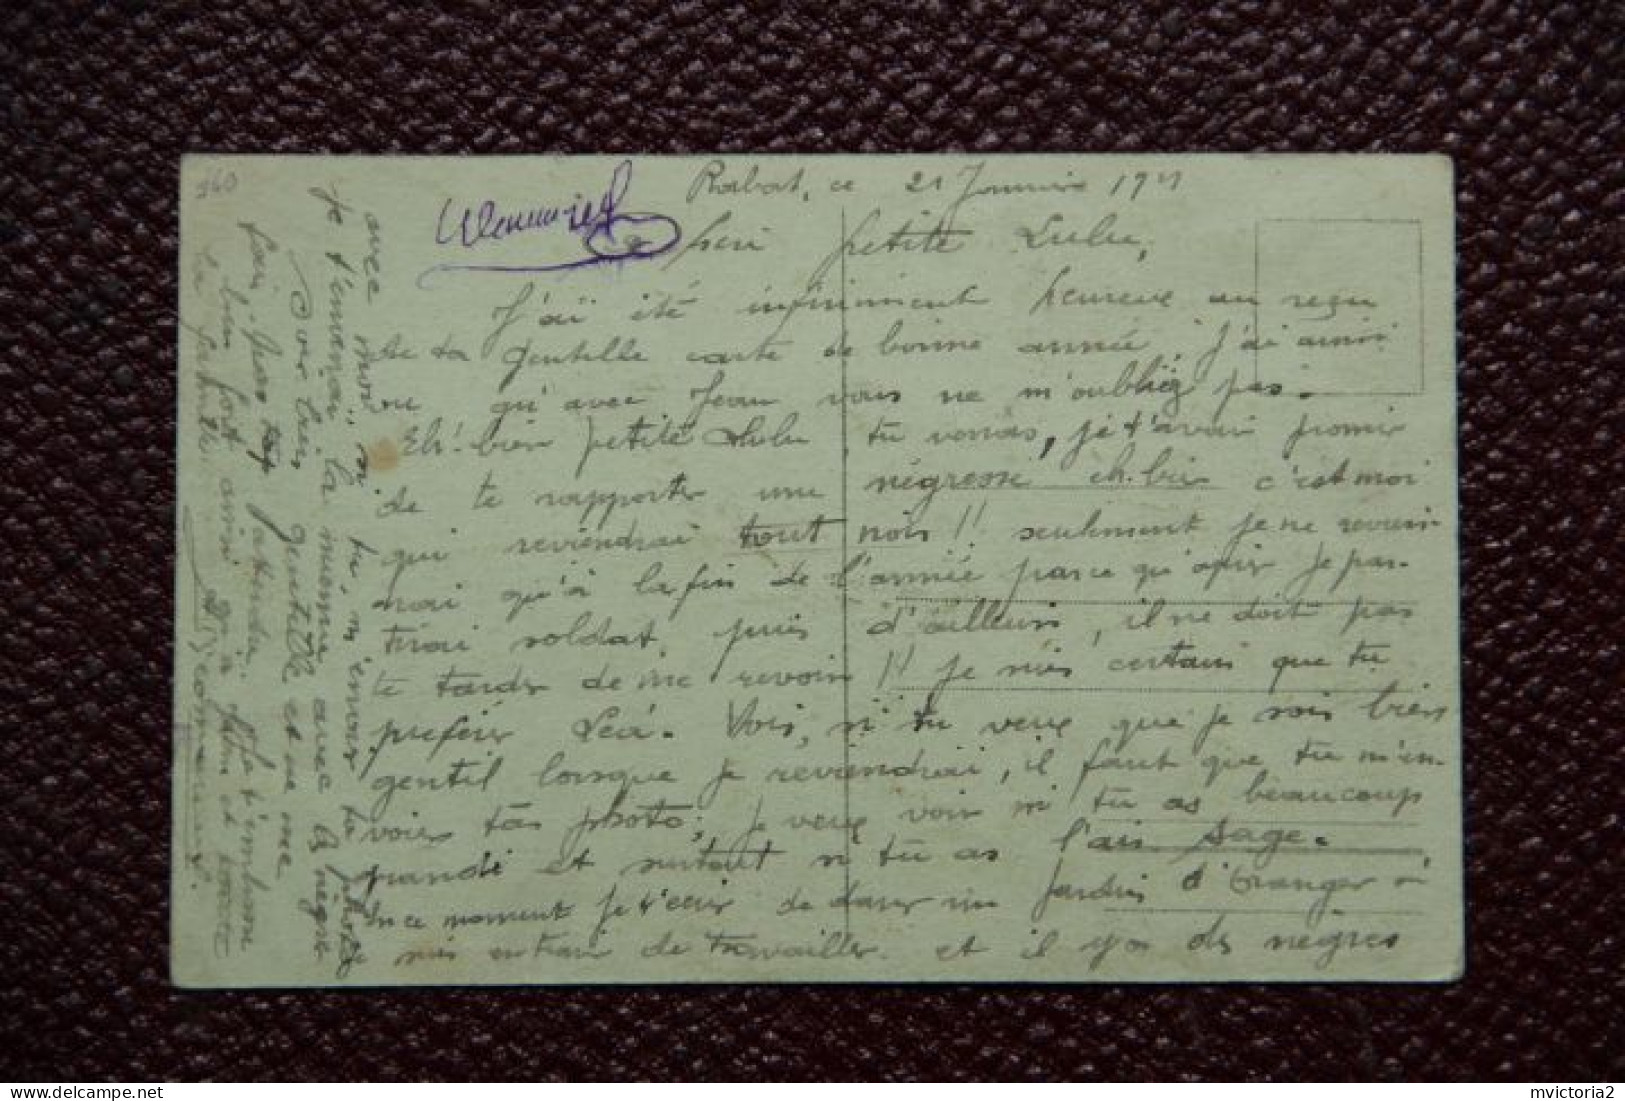 160
Rabat, ce 21 Janvier 19
petite Lulu,
J'ai été infiniment heureux un reçu
de ta gentille carte de bonne année, j'ai ainsi
vu qu'avec Jean vous ne m'oubliez pas.
Eh! bien petite Lulu, tu verras, je t'avais promis
de te rapporter une négresse eh. bien c'est moi
qui reviendrai tout noir!! seulement je ne revien-
drai qu'à la fin de l'année parce qu'après je par-
tirai soldat, puis d'ailleurs, il ne doit pas
te tarder de me revoir!! Je suis certain que tu
préfér Léa. Vois, si tu veux que je sois bien
gentil lorsque je reviendrai, il faut que tu m'en-
voies ta photo; je veux voir si tu as beaucoup
grandi et surtout si tu as l'air sage.
En ce moment je t'écris de dans un Jardin d'Oranger où
je suis en train de travailler. et il y a des nègres
avec moi, si tu m'envoies ta photo
je t'enverrai la mienne avec les nègres
Sois bien gentille et ne me
fais pas attendre. Je t'embrasse
bien fort ainsi qu'à Jean et toute
la famille.
mvictoria2